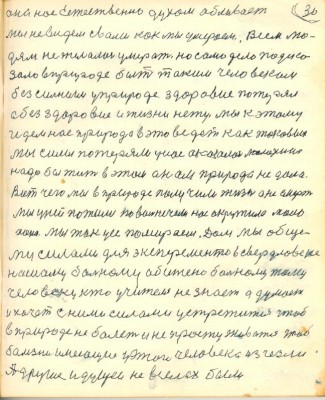 она нас естественно духом обливает 36
мы не видем с вами как мы умираем. Всем лю-
дям не желали умирать. но само дело подска-
зало в природе быть таким человеком
без силы и у природе здоровие потерял
а без здоровие и жизни нету. мы к этому
идем нас природа в это ведет как таковых
мы сили потеряли у нас оказалось
надо бы жить в этом а нам природа не дала.
Вот чего мы в природе получили жизнь а не смерть
мы у ней пожили по в нас окружили мало
мы так усе помираем. Дом мы обще-
ми силами для экспериментов в свердловске
нашому болному обижено болному тому
человеку, кто учителя не знает а думает
и хочет с ними силами устретится чтоб
в природе не болет и не простуживатся чтоб
болезни имеющие у этом человека изчезли.
А другие идущей не в силах были